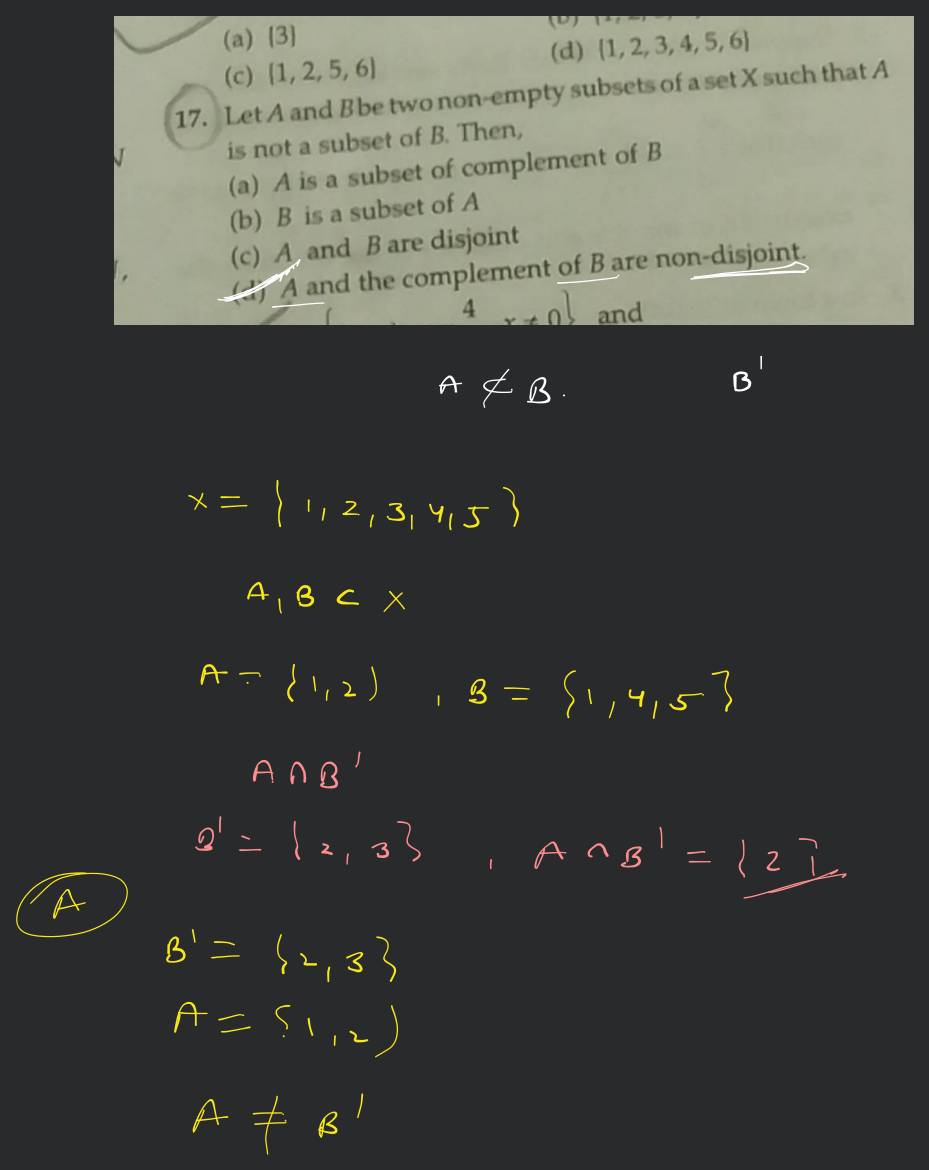 (a) {3}
(c) {1, 2, 5, 6}
(d) {1, 2, 3, 4, 5, 6}
17. Let A and B be two non-empty subsets of a set X such that A
is not a subset of B. Then,
(a) A is a subset of complement of B
(b) B is a subset of A
(c) A and B are disjoint
(d) A and the complement of B are non-disjoint.
4
x ≠ 0} and
A ⊄ B. B'
x = { 1, 2, 3, 4, 5 }
A, B ⊂ X
A = {1, 2) , B = {1, 4, 5}
A ∩ B'
B' = { 2, 3} , A ∩ B' = {2}
A
B' = {2, 3}
A = {1, 2)
A ≠ B'